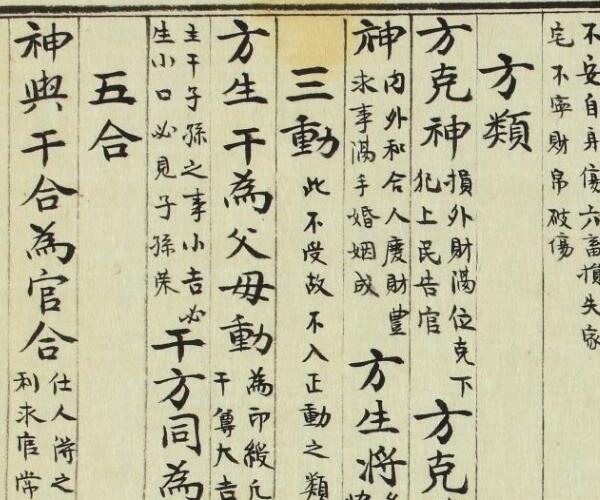 不安自身傷六畜損失家
宅不寧財帛破傷
方類
方克神
損外財滿位克下
犯上民告官
方克
神
內外和合人慶財豊
求事滿手婚姻成
方生將
三動
此不受故不入正動之類
方生干為父母動
為印綬凡
干尊大吉
主干子孫之事小吉必
生小口必見子孫荣
干方同為
五合
神與干合為官合
仕人得之
利求官常